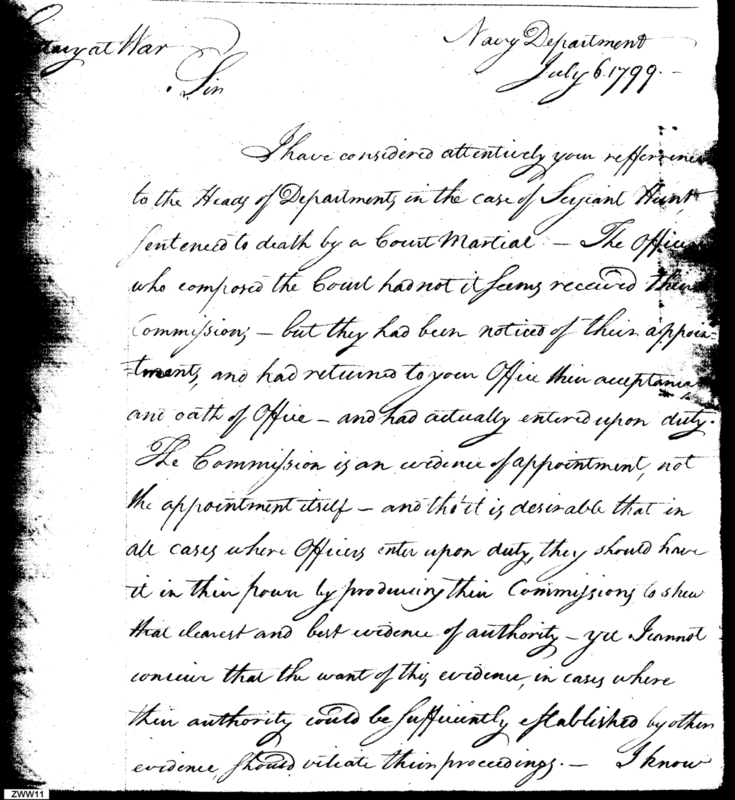 Navy Department
July 6. 1799.—
at War
Sir
I have considered attentively your refference
to the Heads of Departments, in the case of Serjeant Hunt,
sentenced to death by a Court Martial. — The Officers
who composed the Court had not it seems received their
Commissions, — but they had been noticed of their appoin=
=tments, and had returned to your Office their acceptance
and oath of Office — and had actually entered upon duty.
The Commission is an evidence of appointment, not
the appointment itself — and tho' it is desirable that in
all cases where Officers enter upon duty, they should have
it in their power by producing their Commissions to shew
that clearest and best evidence of authority — yet I cannot
conceive that the want of this evidence, in cases where
their authority could be sufficiently established by other
evidence should vitiate their proceedings. — I know
ZWW11